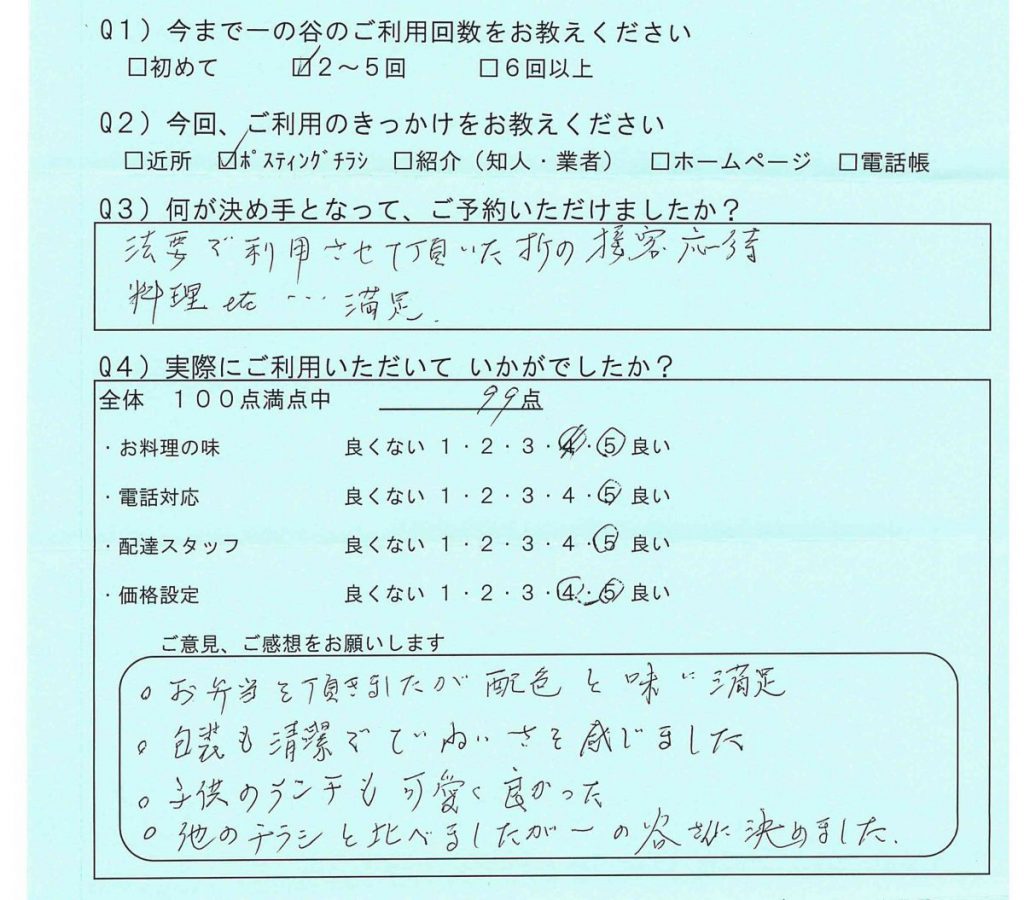 Q1）今まで一の谷のご利用回数をお教えください
□初めて ☑2～5回 □6回以上
Q2）今回、ご利用のきっかけをお教えください
□近所 ☑ﾎﾟｽティングﾞチラシ □紹介（知人・業者） □ホームページ □電話帳
Q3）何が決め手となって、ご予約いただけましたか？
法要で利用させて頂いた折の接客応待
料理 etc … 満足.
Q4）実際にご利用いただいて いかがでしたか？
全体 100点満点中 99点
・お料理の味 良くない 1・2・3・4・5 良い
・電話対応 良くない 1・2・3・4・5 良い
・配達スタッフ 良くない 1・2・3・4・5 良い
・価格設定 良くない 1・2・3・4・5 良い
ご意見、ご感想をお願いします
○ お弁当を頂きましたが配色と味に満足
○ 包装も清潔でていねいさを感じました
○ 子供のランチも可愛く良かった
○ 他のチラシと比べましたが一の谷さんに決めました.